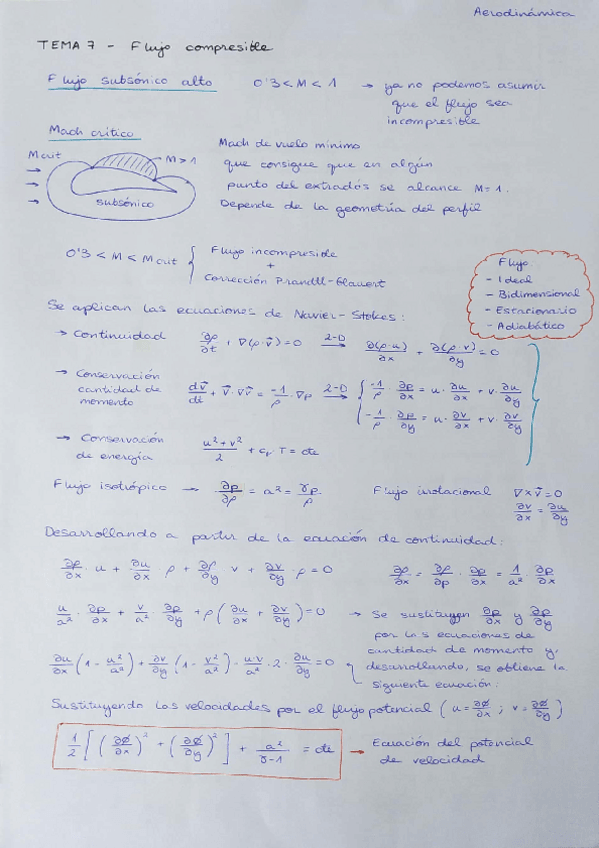 Aerodinámica
TEMA 7 - Flujo compresible
Flujo subsónico alto 0'3 < M < 1 → ya no podemos asumir
que el flujo sea
incompresible
Mach crítico
Mach de vuelo mínimo
que consigue que en algún
punto del extradós se alcance M = 1.
Depende de la geometría del perfil
Mcrit
M > 1
subsónico
0'3 < M < Mcrit { Flujo incompresible
+
Corrección Prandtl-Glauert
Flujo
- Ideal
- Bidimensional
- Estacionario
- Adiabático
Se aplican las ecuaciones de Navier-Stokes:
→ Continuidad ∂ρ/∂t + ∇(ρ·v⃗) = 0 2-D→ ∂(ρ·u)/∂x + ∂(ρ·v)/∂y = 0
→ Conservación
cantidad de
momento
dv⃗/dt + v⃗·∇v⃗ = -1/ρ · ∇p 2-D→ { -1/ρ · ∂p/∂x = u · ∂u/∂x + v · ∂u/∂y
-1/ρ · ∂p/∂y = u · ∂v/∂x + v · ∂v/∂y
→ Conservación
de energía
(u² + v²)/2 + cp T = cte
Flujo isotrópico → ∂p/∂ρ = a² = γp/ρ Flujo irrotacional ∇×v⃗ = 0
∂v/∂x = ∂u/∂y
Desarrollando a partir de la ecuación de continuidad:
∂ρ/∂x · u + ∂u/∂x · ρ + ∂ρ/∂y v + ∂v/∂y · ρ = 0 ∂ρ/∂x = ∂ρ/∂p · ∂p/∂x = 1/a² ∂p/∂x
u/a² · ∂p/∂x + v/a² · ∂p/∂y + ρ(∂u/∂x + ∂v/∂y) = 0 → Se sustituyen ∂p/∂x y ∂p/∂y
por las ecuaciones de
cantidad de momento y,
desarrollando, se obtiene la
siguiente ecuación:
∂u/∂x (1 - u²/a²) + ∂v/∂y (1 - v²/a²) - u·v/a² · 2 · ∂u/∂y = 0
Sustituyendo las velocidades por el flujo potencial (u = ∂ø/∂x ; v = ∂ø/∂y)
1/2 [(∂ø/∂x)² + (∂ø/∂y)²] + a²/(γ-1) = cte → Ecuación del potencial
de velocidad